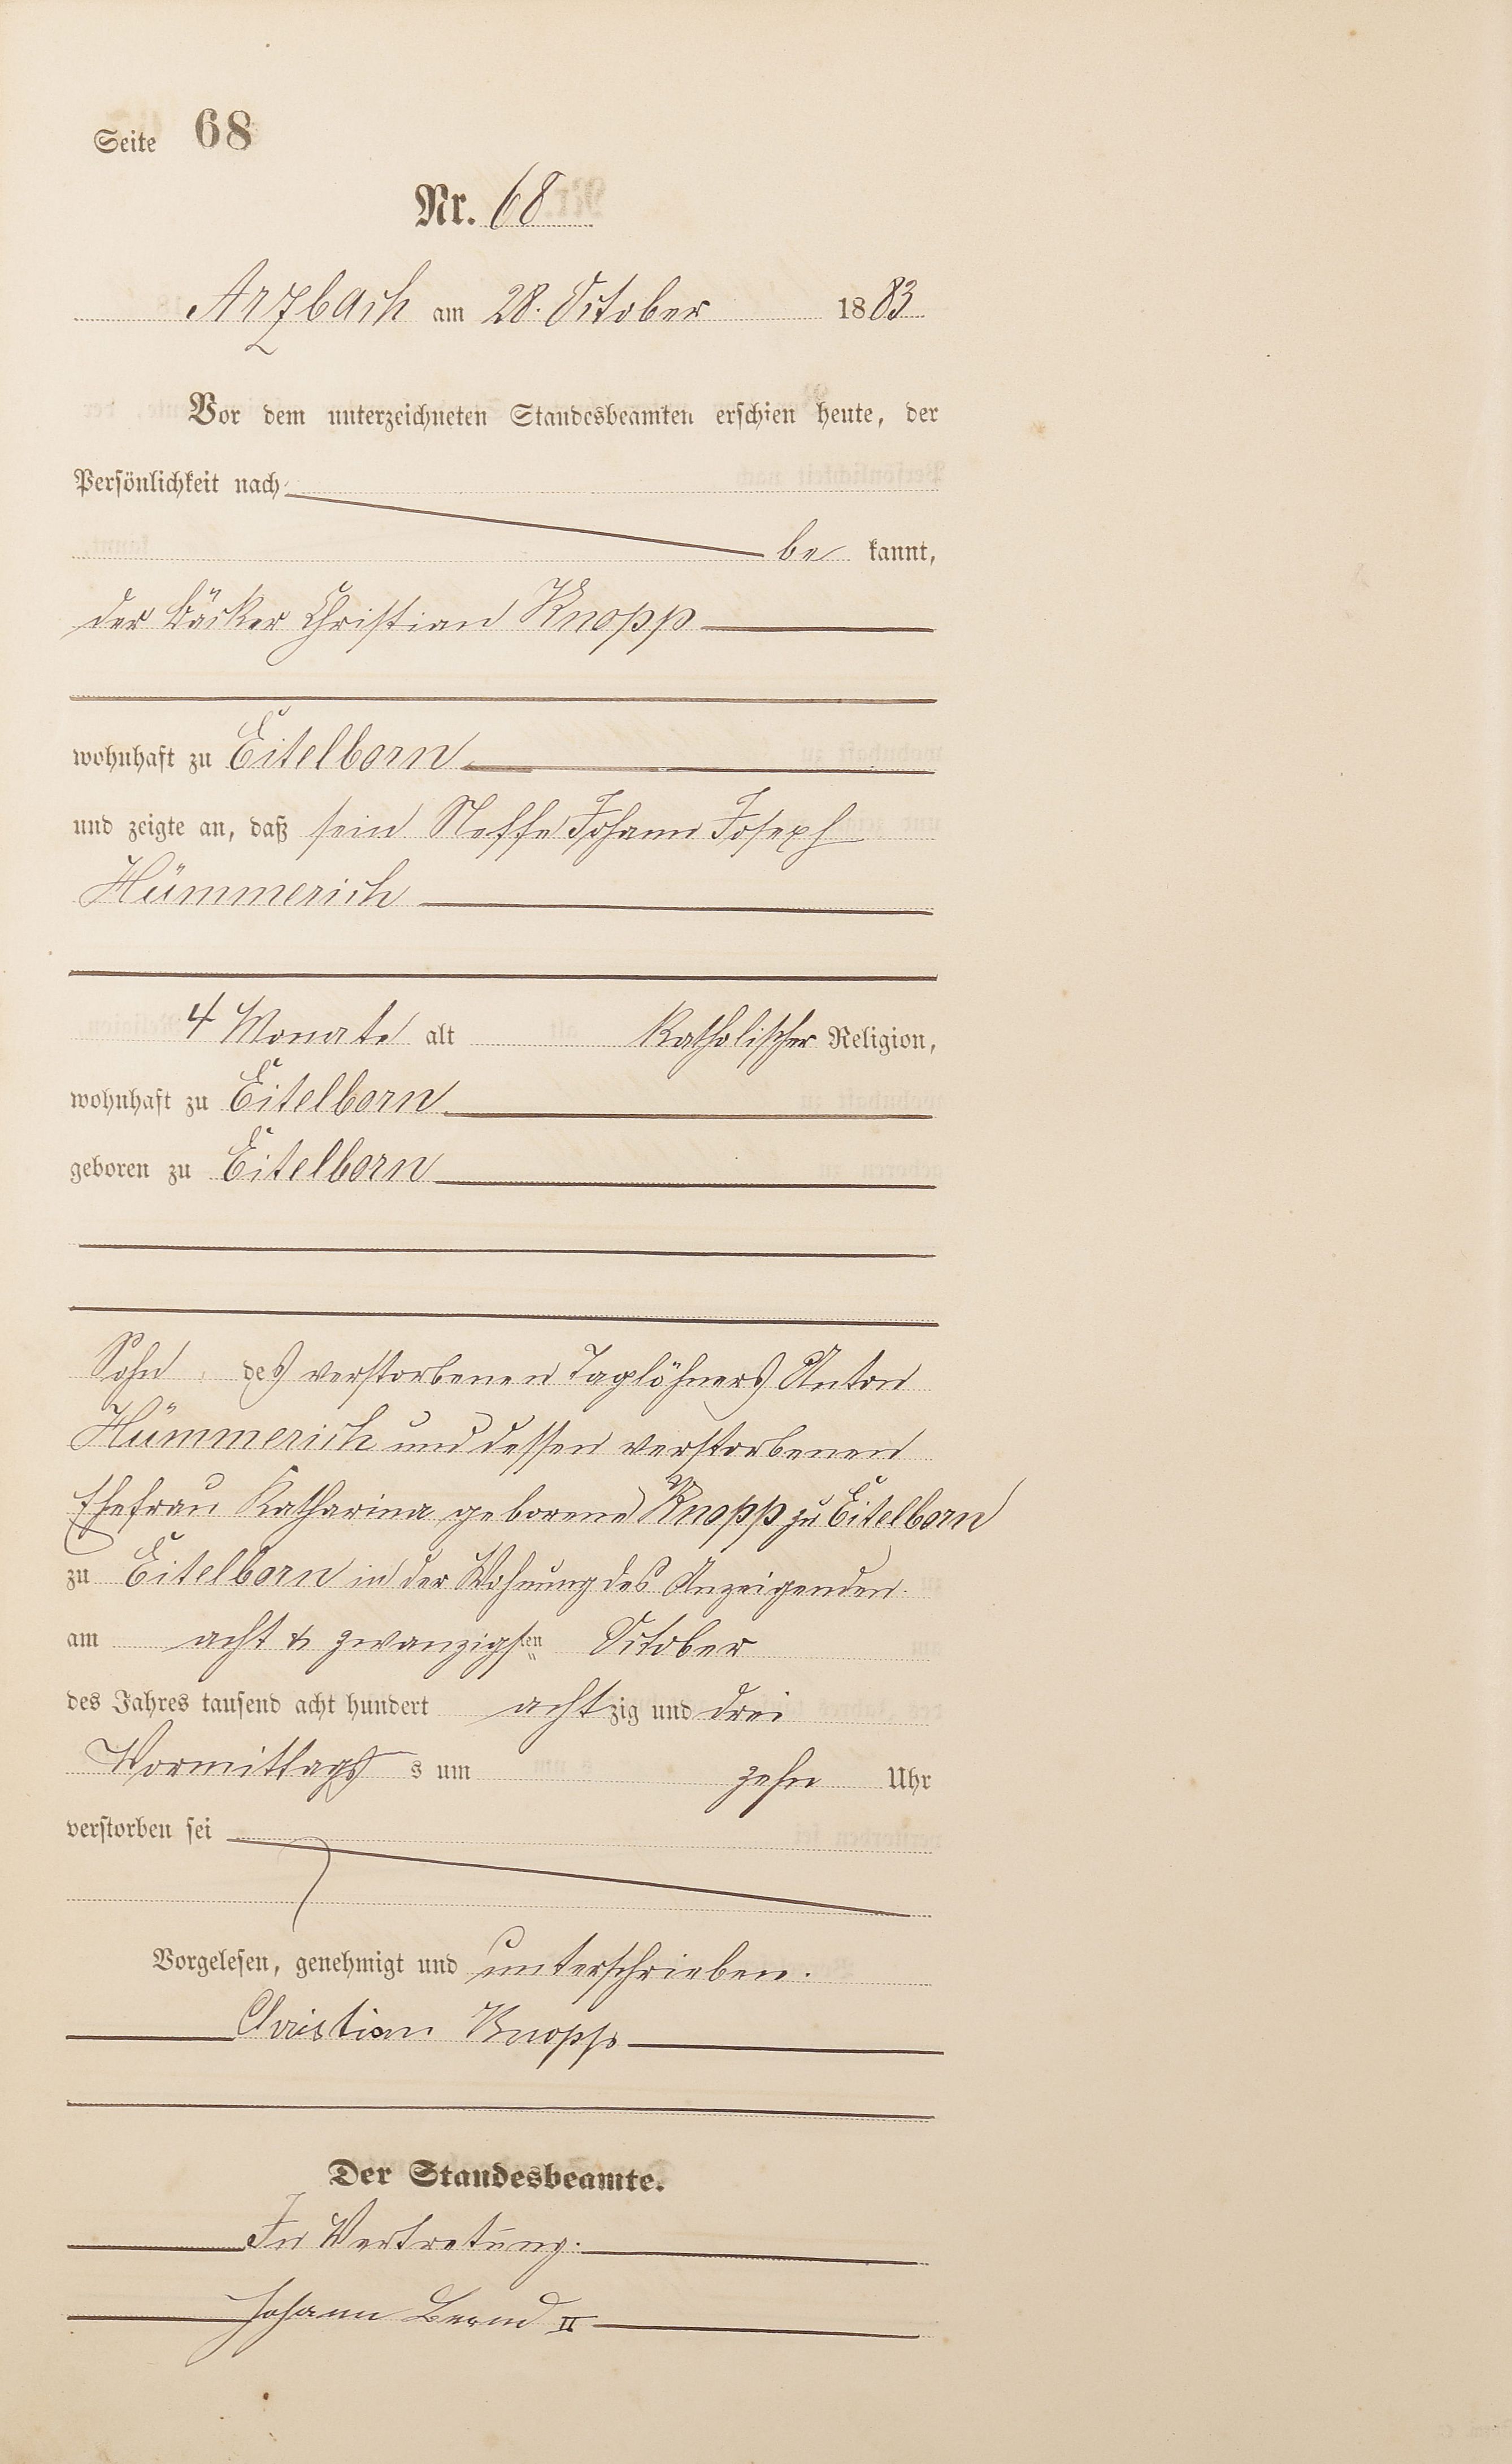 Seite 68
Nr. 68
Arzbach am 28. October 1883
Vor dem unterzeichneten Standesbeamten erschien heute, der
Persönlichkeit nach
be kannt,
der Bäcker Christian Knopp
wohnhaft zu Eitelborn
und zeigte an, daß sein Neffe Johann Joseph
Hümmerich
4 Monate alt katholischer Religion,
wohnhaft zu Eitelborn
geboren zu Eitelborn
Sohn des verstorbenen Taglöhners Anton
Hümmerich und dessen verstorbenen
Ehefrau Katharina geborene Knopp zu Eitelborn
zu Eitelborn in der Wohnung des Anzeigenden
am acht & zwanzigsten October
des Jahres tausend acht hundert achtzig und drei
Vormittags s um zehn Uhr
verstorben sei
Vorgelesen, genehmigt und unterschrieben.
Christian Knopp
Der Standesbeamte.
In Vertretung.
Johann Bernd II